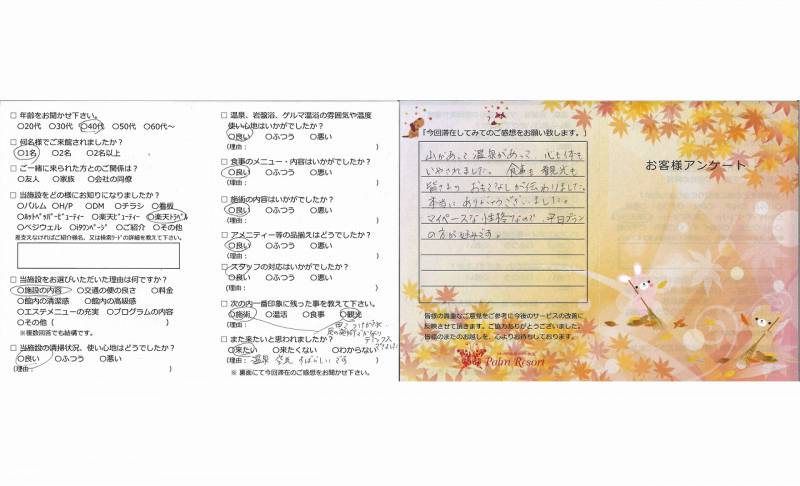 □ 年齢をお聞かせ下さい。
○20代 ○30代 ○40代 ○50代 ○60代～
□ 何名様でご来館されましたか?
○1名 ○2名 ○2名以上
□ ご一緒に来られた方とのご関係は?
○友人 ○家族 ○会社の同僚
□ 当施設をどの様にお知りになりましたか?
○パルム ○H/P ○DM ○チラシ ○看板
○ホットペッパービューティー ○楽天ビューティー ○楽天トラベル
○ベジウェル ○iタウンページ ○ご紹介 ○その他
差支えなければご紹介様名、又は検索ワードの詳細を教えて下さい。
□ 当施設をお選びいただいた理由は何ですか?
○施設の内容 ○交通の便の良さ ○料金
○館内の清潔感 ○館内の高級感
○エステメニューの充実 ○プログラムの内容
○その他 ( )
※複数回答でも結構です。
□ 当施設の清掃状況、使い心地はどうでしたか?
○良い ○ふつう ○悪い
(理由: )
□ 温泉、岩盤浴、ゲルマ温浴の雰囲気や温度
使い心地はいかがでしたか?
○良い ○ふつう ○悪い
(理由: )
□ 食事のメニュー・内容はいかがでしたか?
○良い ○ふつう ○悪い
(理由: )
□ 施術の内容はいかがでしたか?
○良い ○ふつう ○悪い
(理由: )
□ アメニティー等の品揃えはどうでしたか?
○良い ○ふつう ○悪い
(理由: )
□ スタッフの対応はいかがでしたか?
○良い ○ふつう ○悪い
(理由: )
□ 次の内一番印象に残った事を教えて下さい。
○施術 ○温活 ○食事 ○観光
(理由:
デトックス
□ また来たいと思われましたか?
○来たい ○来たくない ○わからない
(理由: 温泉 空気 すばらしいです )
※ 裏面にて今回滞在のご感想をお聞かせ下さい。
「今回滞在してみてのご感想をお願い致します。」
山があって 温泉があって 心も体も
いやされました。 食事も 観光も
皆さまの おもてなしが伝わりました。
本当に ありがとうございました。
マイペースな性格なので、平日プラン
の方が好みです。
皆様の貴重なご意見をご参考に今後のサービスの改善に
反映させて頂きます。ご協力ありがとうございました。
皆様のまたのお越しを、心よりお待ちしております。
Palm Resort
お客様アンケート